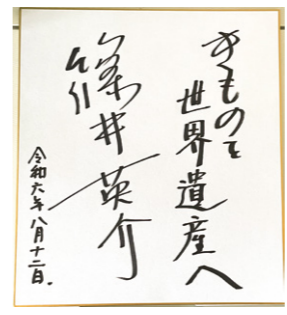 きものを
世界遺産へ
篠井英介
令和六年八月十二日.